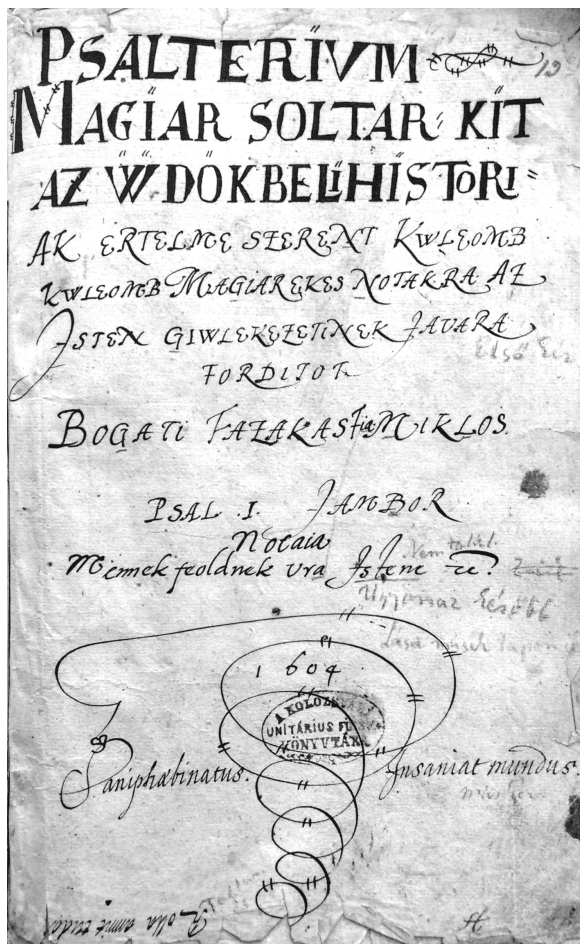 PSALTERIVM
19
MAGIAR SOLTAR KIT
AZ WDÖKBELI HISTORI=
AK ERTELME SZERENT KWLEOMB
KWLEOMB MAGIAR EKES NOTAKRA AZ
ISTEN GIWLEKEZETINEK JAVARA
FORDITOT
BOGATI FAZAKAS Fia MIKLOS.
PSAL. I. JAMBOR
Notaia
Mennek feoldnek Vra Istene
Nem talál.
Ujjonnaz később
1604
A KOLOZSVÁRI
UNITÁRIUS FŐISK.
KÖNYVTÁRA
Insaniat mundus.